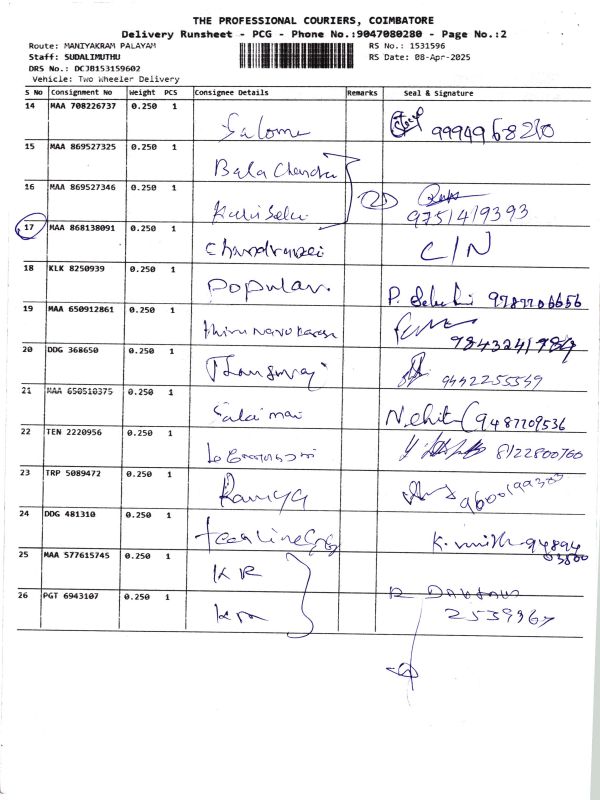 THE PROFESSIONAL COURIERS, COIMBATORE
Delivery Runsheet - PCG - Phone No.:9047080280 - Page No.:2
Route: MANIYAKRAM PALAYAM RS No.: 1531596
Staff: SUDALIMUTHU RS Date: 08-Apr-2025
DRS No.: DCJB153159602
Vehicle: Two Wheeler Delivery
S No Consignment No Weight PCS Consignee Details Remarks Seal & Signature
14 MAA 708226737 0.250 1
Salome 9994968210
15 MAA 869527325 0.250 1
Bala Chandra
16 MAA 869527346 0.250 1
9751419393
17 MAA 868138091 0.250 1
C/N
18 KLK 8250939 0.250 1
Popular. P. Selvi 9787706656
19 MAA 650912861 0.250 1
20 DDG 368650 0.250 1
Thangaraj 9442255549
21 MAA 650510375 0.250 1
9487709536
22 TEN 2220956 0.250 1
8122800760
23 TRP 5089472 0.250 1
Ramya
24 DDG 481310 0.250 1
25 MAA 577615745 0.250 1
KR
26 PGT 6943107 0.250 1
KR 2539367